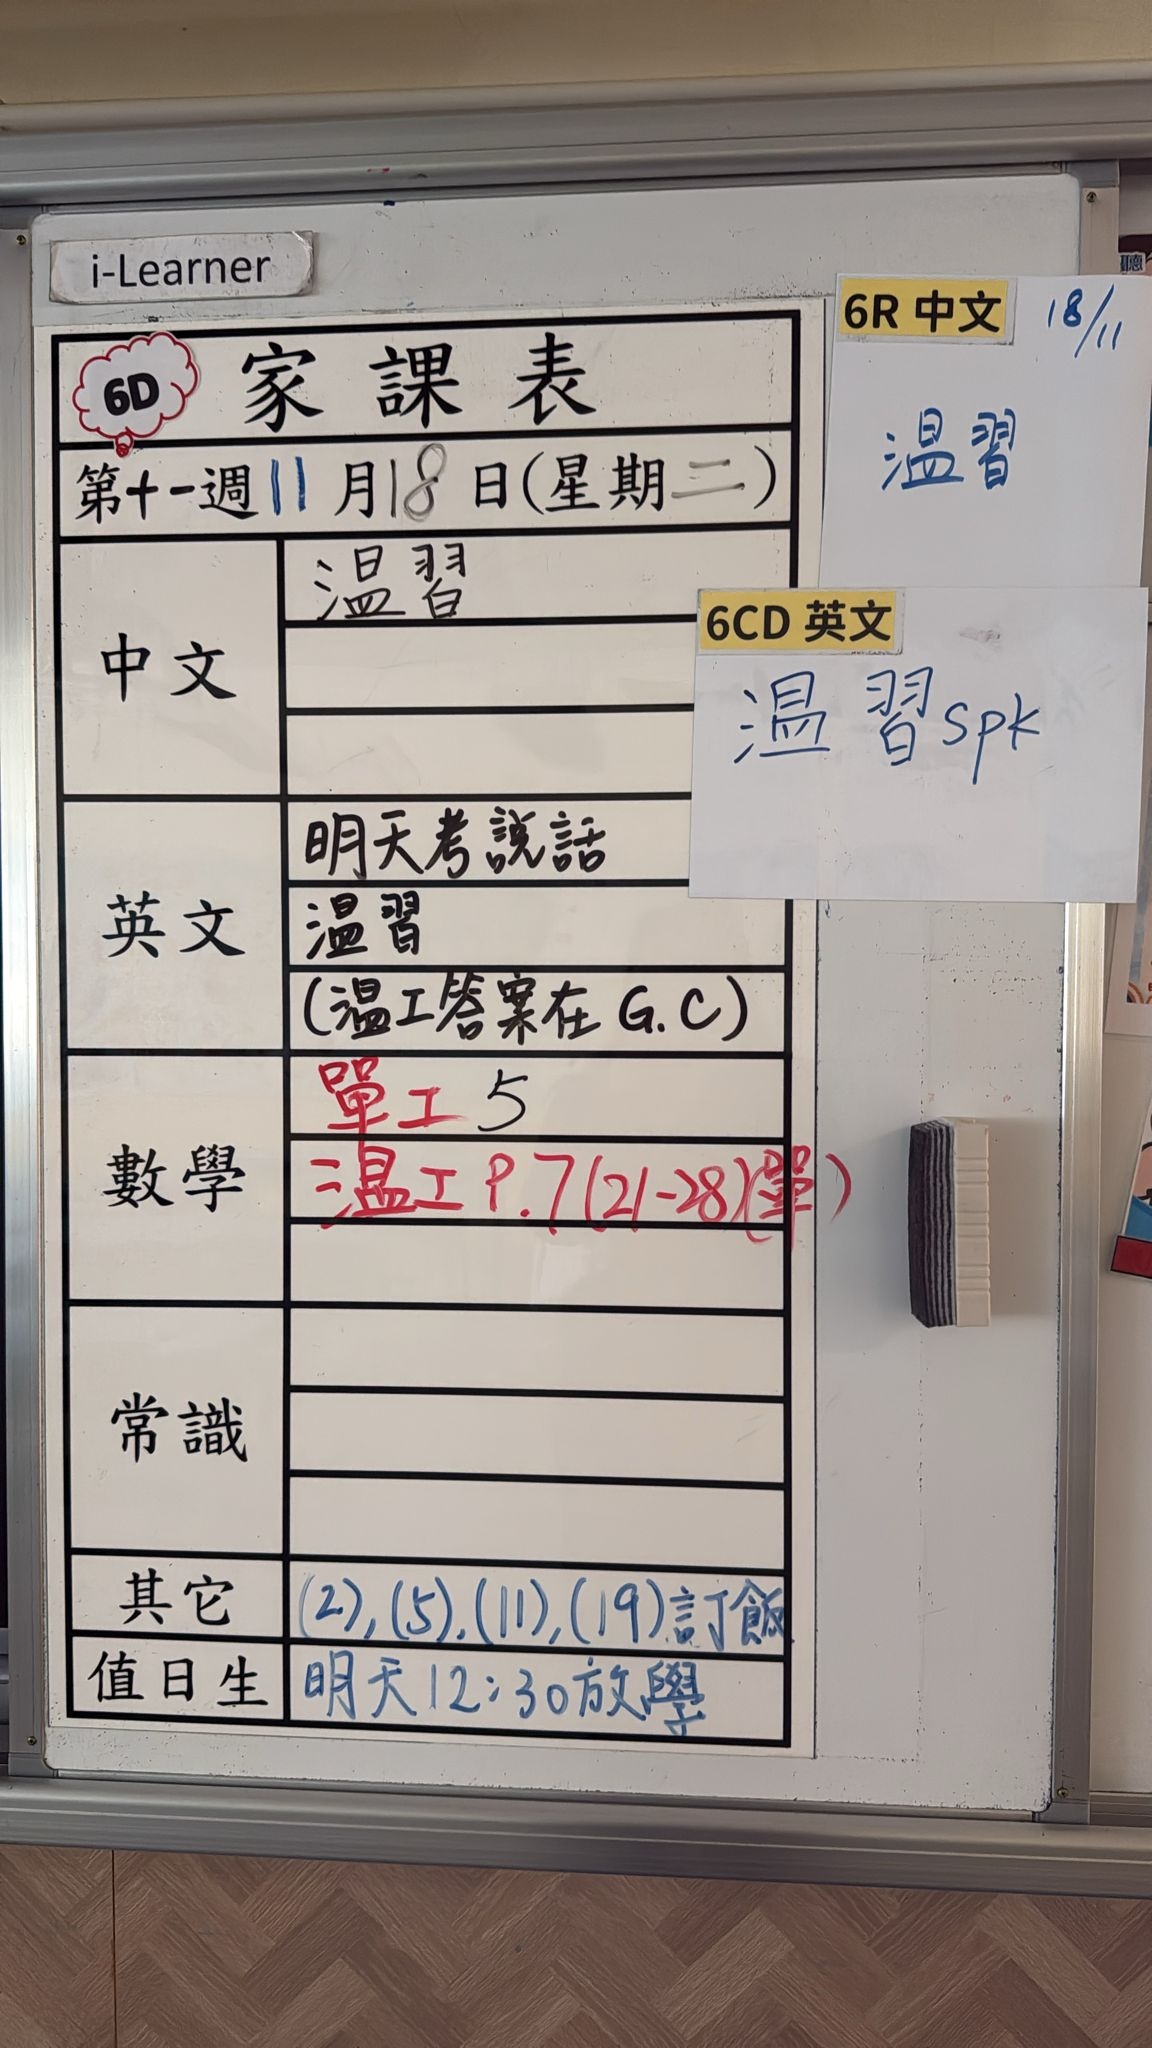 i-Learner
6D 家課表
第十一週11月18日(星期二)
中文
温習
英文
明天考說話
温習
(温工答案在 G.C)
數學
單工 5
温工 P.7(21-28)(單)
常識
其它
(2),(5),(11),(19)訂飯
值日生
明天12:30放學
6R 中文 18/11
温習
6CD 英文
温習 spk
聽